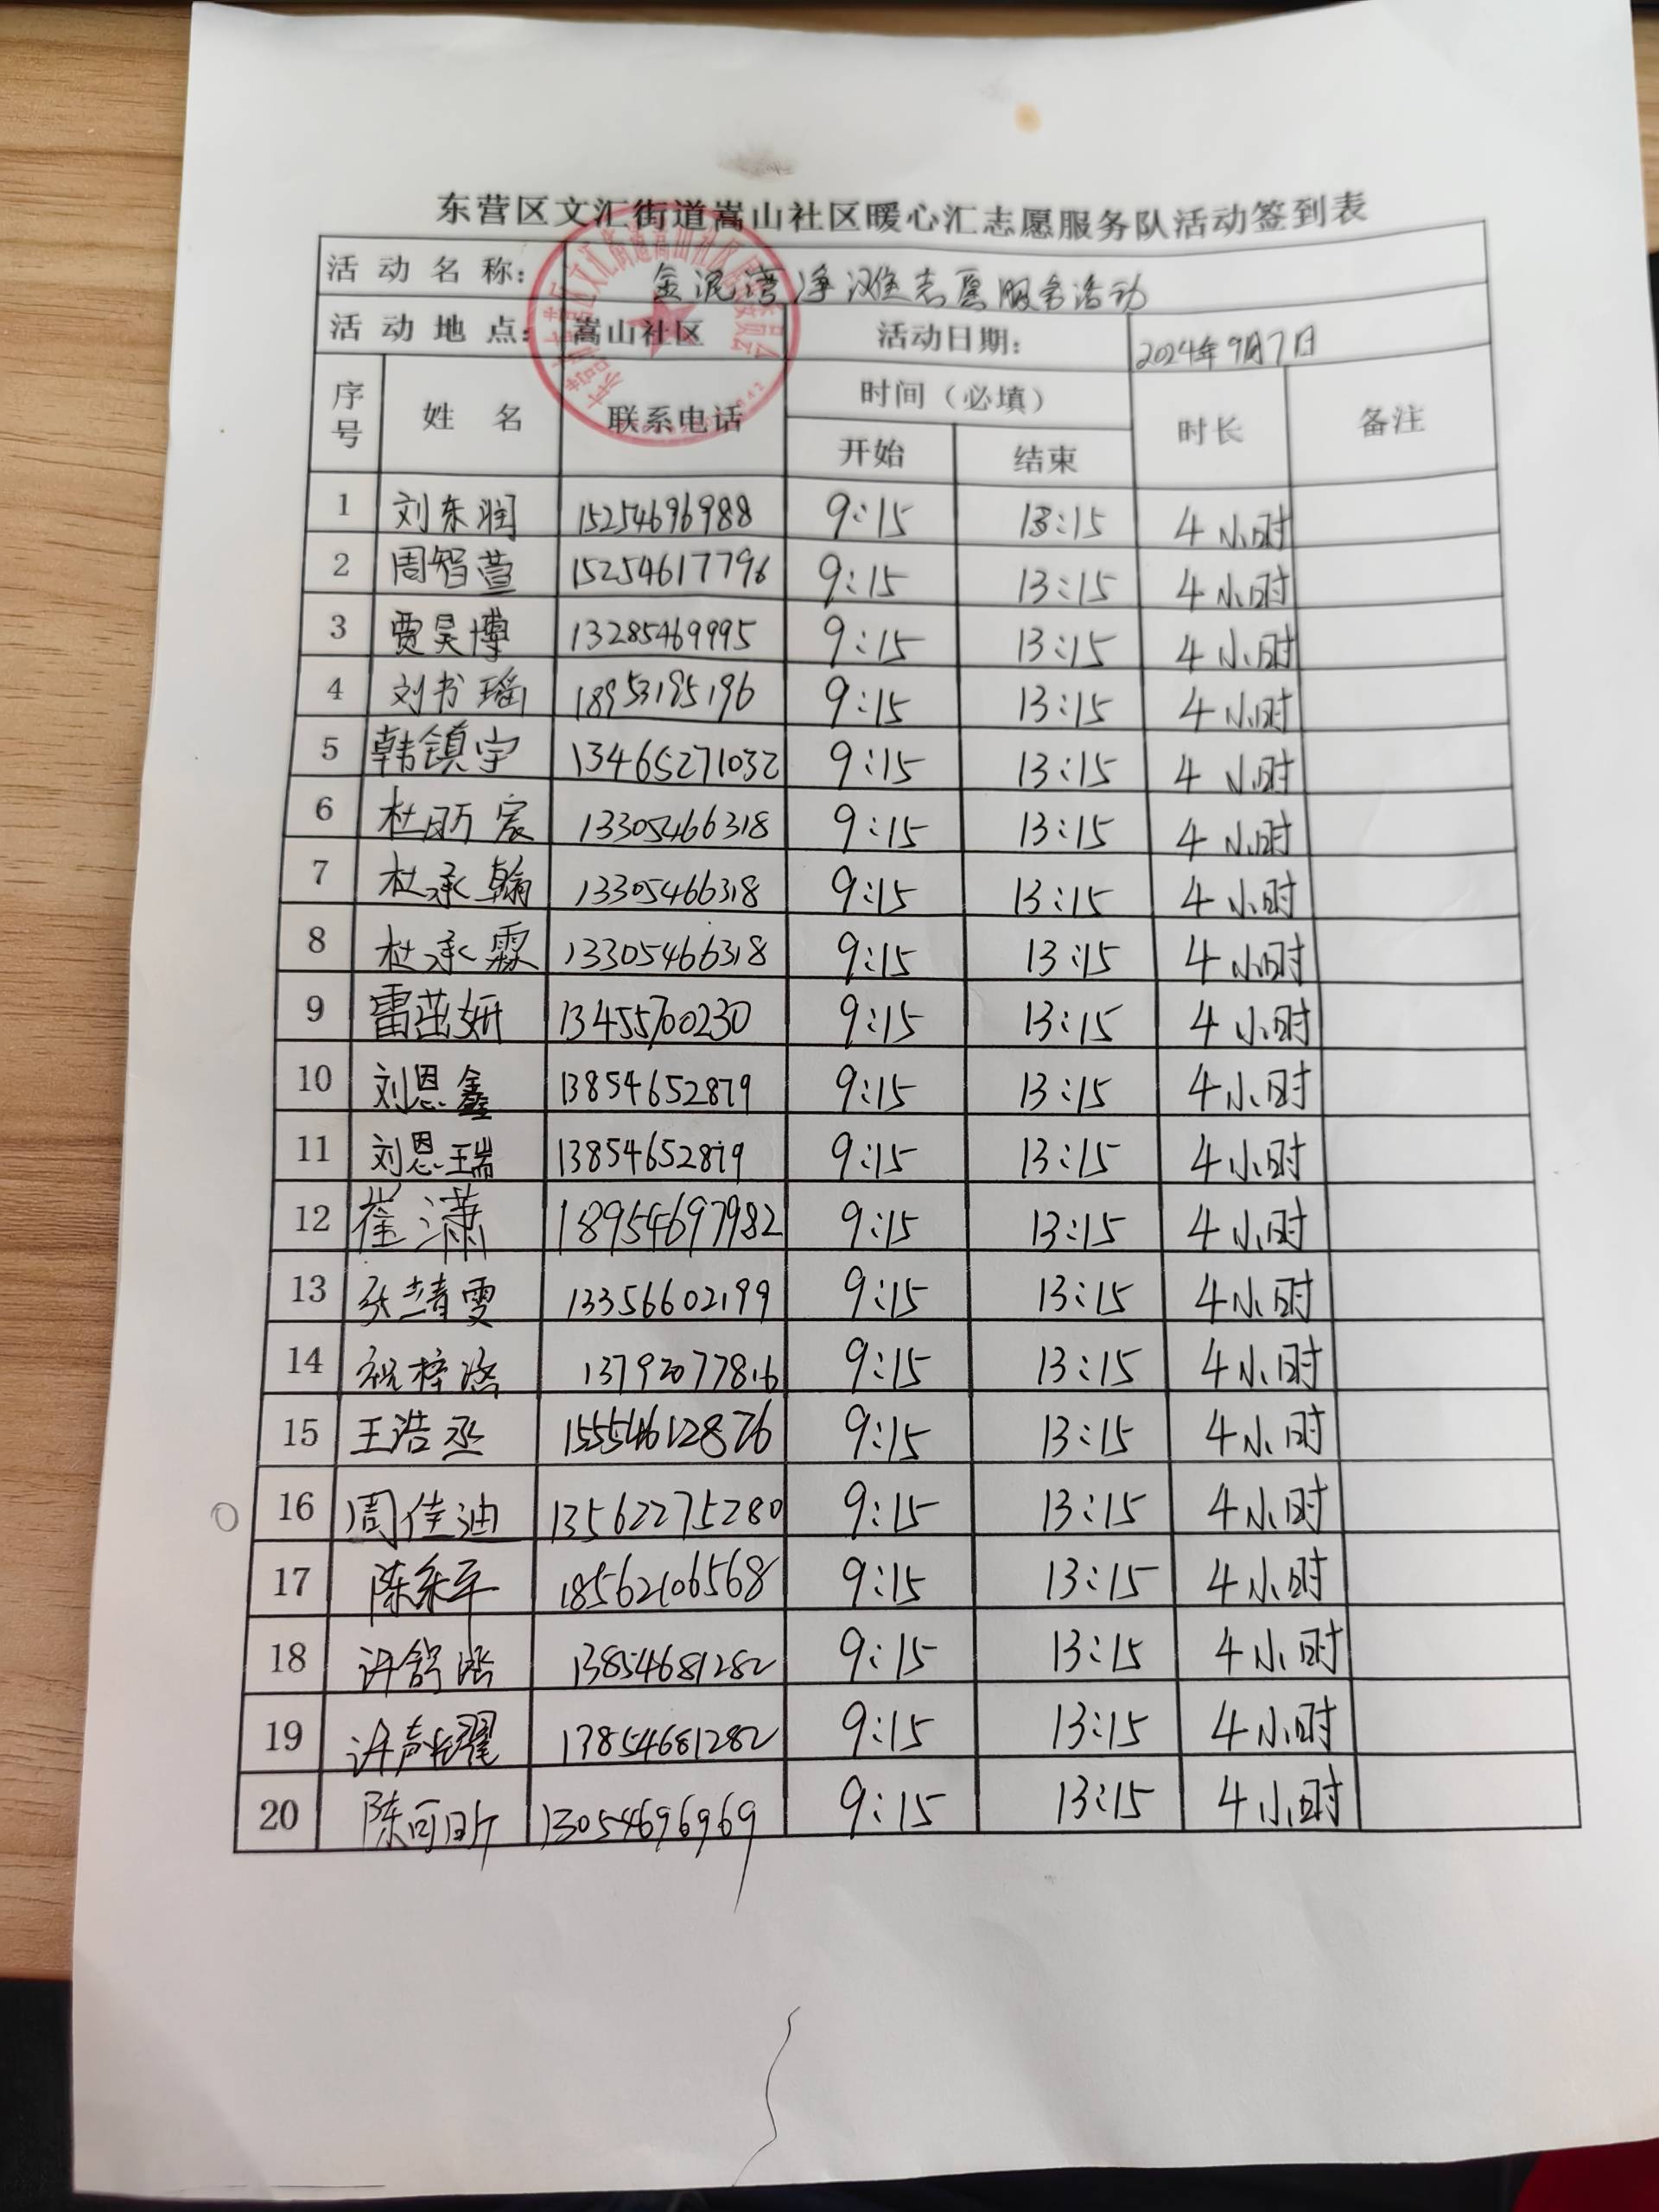 东营区文汇街道嵩山社区暖心汇志愿服务队活动签到表
活动名称： 金泥湾净滩志愿服务活动
活动地点： 嵩山社区 活动日期： 2024年9月7日
序号 姓名 联系电话 时间（必填） 时长 备注
开始 结束
1 刘东润 15254696988 9:15 13:15 4小时
2 周智萱 15254617796 9:15 13:15 4小时
3 贾昊博 13285469995 9:15 13:15 4小时
4 刘书瑶 18953195196 9:15 13:15 4小时
5 韩镇宇 13465271032 9:15 13:15 4小时
6 杜昉宸 13305466318 9:15 13:15 4小时
7 杜承翰 13305466318 9:15 13:15 4小时
8 杜承霖 13305466318 9:15 13:15 4小时
9 雷茁妍 13455700230 9:15 13:15 4小时
10 刘恩鑫 13854652879 9:15 13:15 4小时
11 刘恩瑞 13854652879 9:15 13:15 4小时
12 崔潇 18954697982 9:15 13:15 4小时
13 张婧雯 13356602199 9:15 13:15 4小时
14 祝梓涵 13792077816 9:15 13:15 4小时
15 王浩丞 15554612876 9:15 13:15 4小时
16 周佳迪 13562275280 9:15 13:15 4小时
17 陈乐平 18562106568 9:15 13:15 4小时
18 许舒涵 13854681282 9:15 13:15 4小时
19 许嘉耀 13854681282 9:15 13:15 4小时
20 陈可昕 13054696969 9:15 13:15 4小时